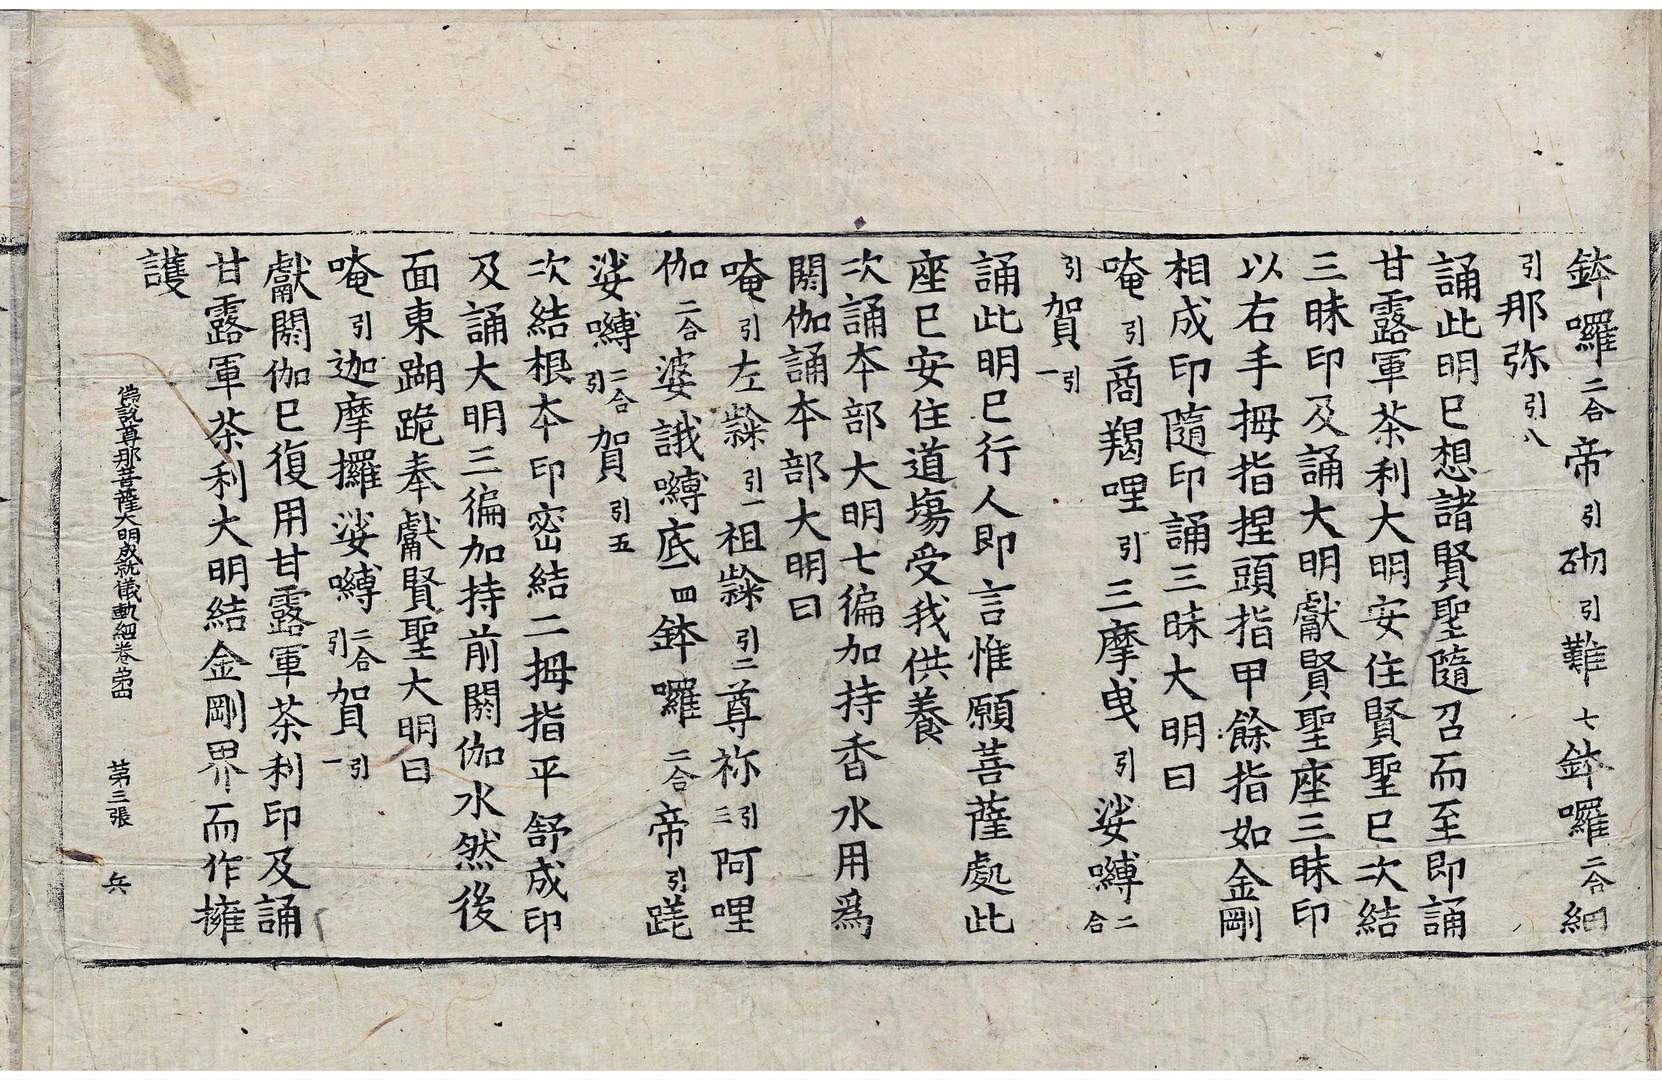 鉢囉二合帝引砌引難七鉢囉二合細
引那弥引八
誦此明已想諸賢聖隨召而至即誦
甘露軍茶利大明安住賢聖已次結
三昧印及誦大明獻賢聖座三昧印
以右手拇指捏頭指甲餘指如金剛
相成印隨印誦三昧大明曰
唵引商羯哩引三摩曳引娑嚩二合
引賀引一
誦此明已行人即言惟願菩薩處此
座已安住道塲受我供養
次誦本部大明七徧加持香水用爲
閼伽誦本部大明曰
唵引左隸引一祖隸引二尊祢引三阿哩
伽二合婆誐嚩底四鉢囉二合帝引蹉
娑嚩二合引賀引五
次結根本印密結二拇指平舒成印
及誦大明三徧加持前閼伽水然後
面東踟跪奉獻賢聖大明曰
唵引迦摩攞娑嚩二合引賀引一
獻閼伽已復用甘露軍茶利印及誦
甘露軍茶利大明結金剛界而作擁
護
佛說尊那菩薩大明成就儀軌經卷第四　第三張　兵